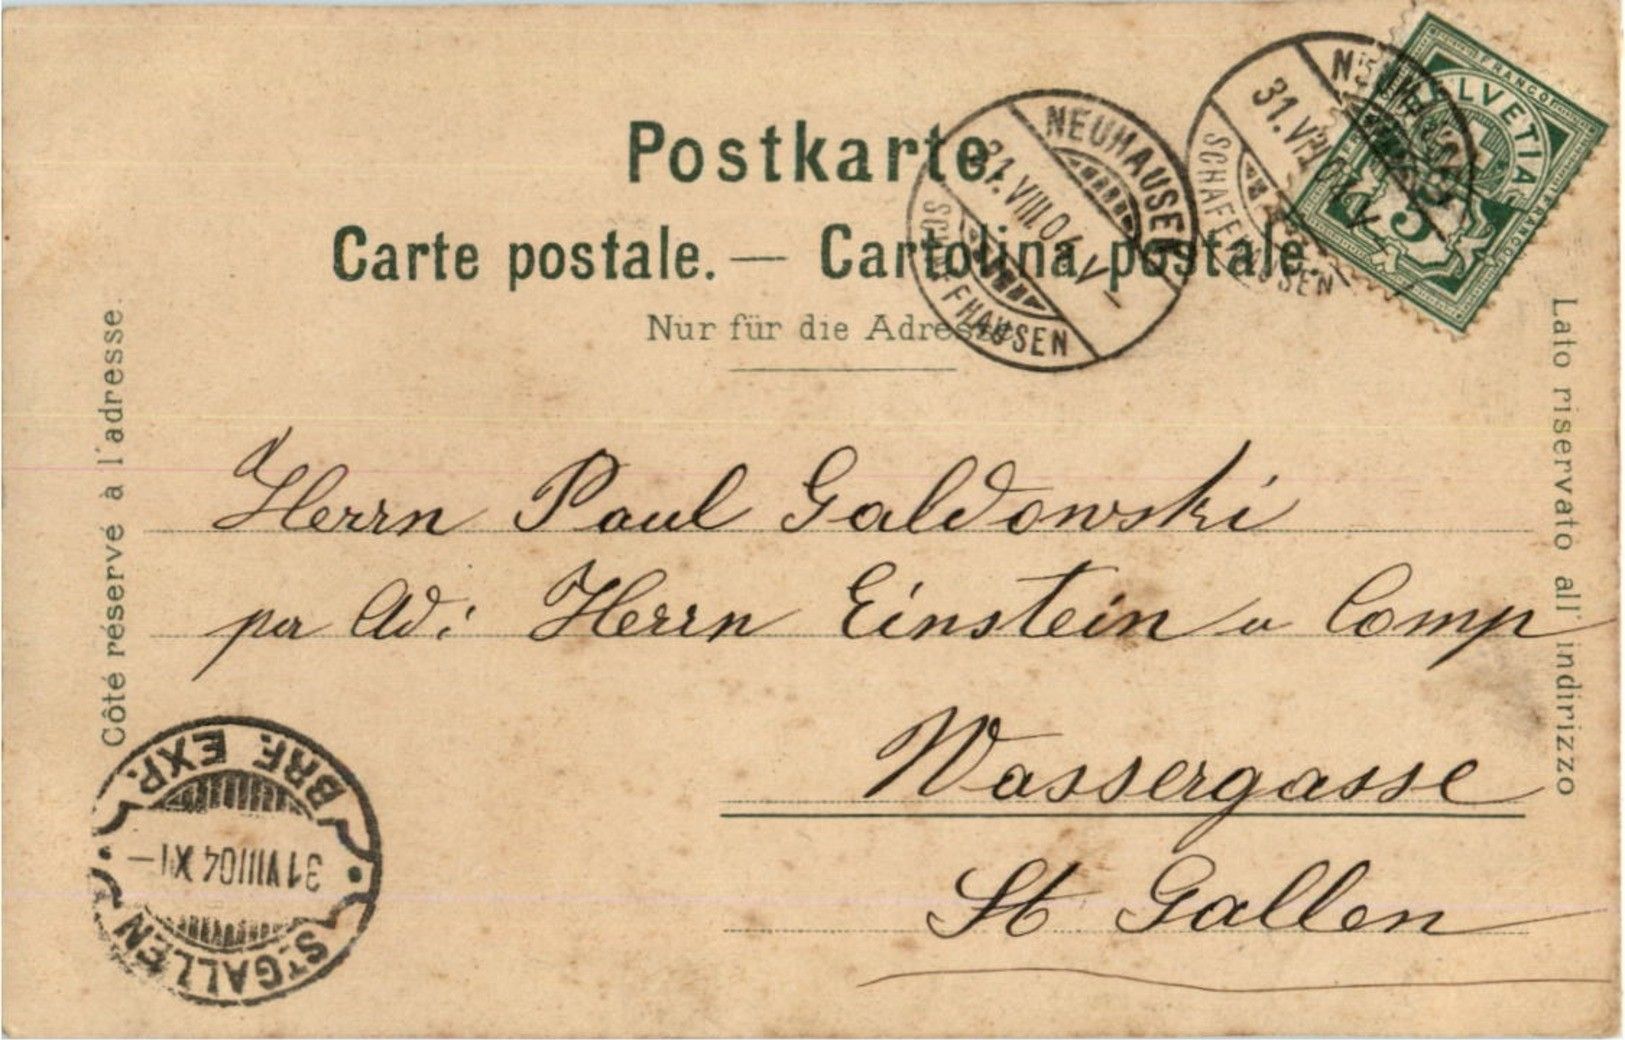 Postkarte.
Carte postale. — Cartolina postale.
Nur für die Adresse
Côté réservé à l'adresse.
Lato riservato all' indirizzo
FRANCO
HELVETIA
FRANCO
5
NEUHAUSEN
31.VIII.04.V–
SCHAFFHAUSEN
NEUHAUSEN
31.VIII.04.V–
SCHAFFHAUSEN
Herrn Paul Galdowski
per Ad: Herrn Einstein u Comp
Wassergasse
St Gallen
BRF. EXP.
31 VIII 04 XI–
ST. GALLEN